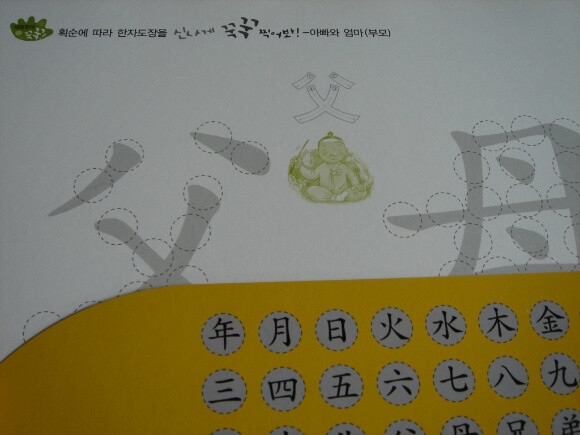 꾹꾹! 획순에 따라 한자도장을 신나게 꾹꾹 찍어보자! -아빠와 엄마(부모)
父
父 母
年 月 日 火 水 木 金
三 四 五 六 七 八 九
父 母 兄 弟